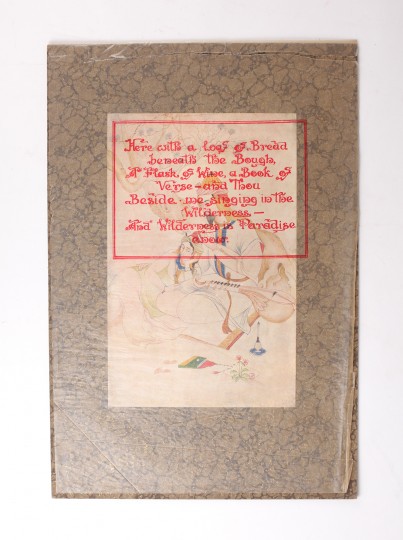 Here with a Loaf of Bread
beneath the Bough,
A Flask of Wine, a Book of
Verse – and Thou
Beside me singing in the
Wilderness —
And Wilderness is Paradise
enow.